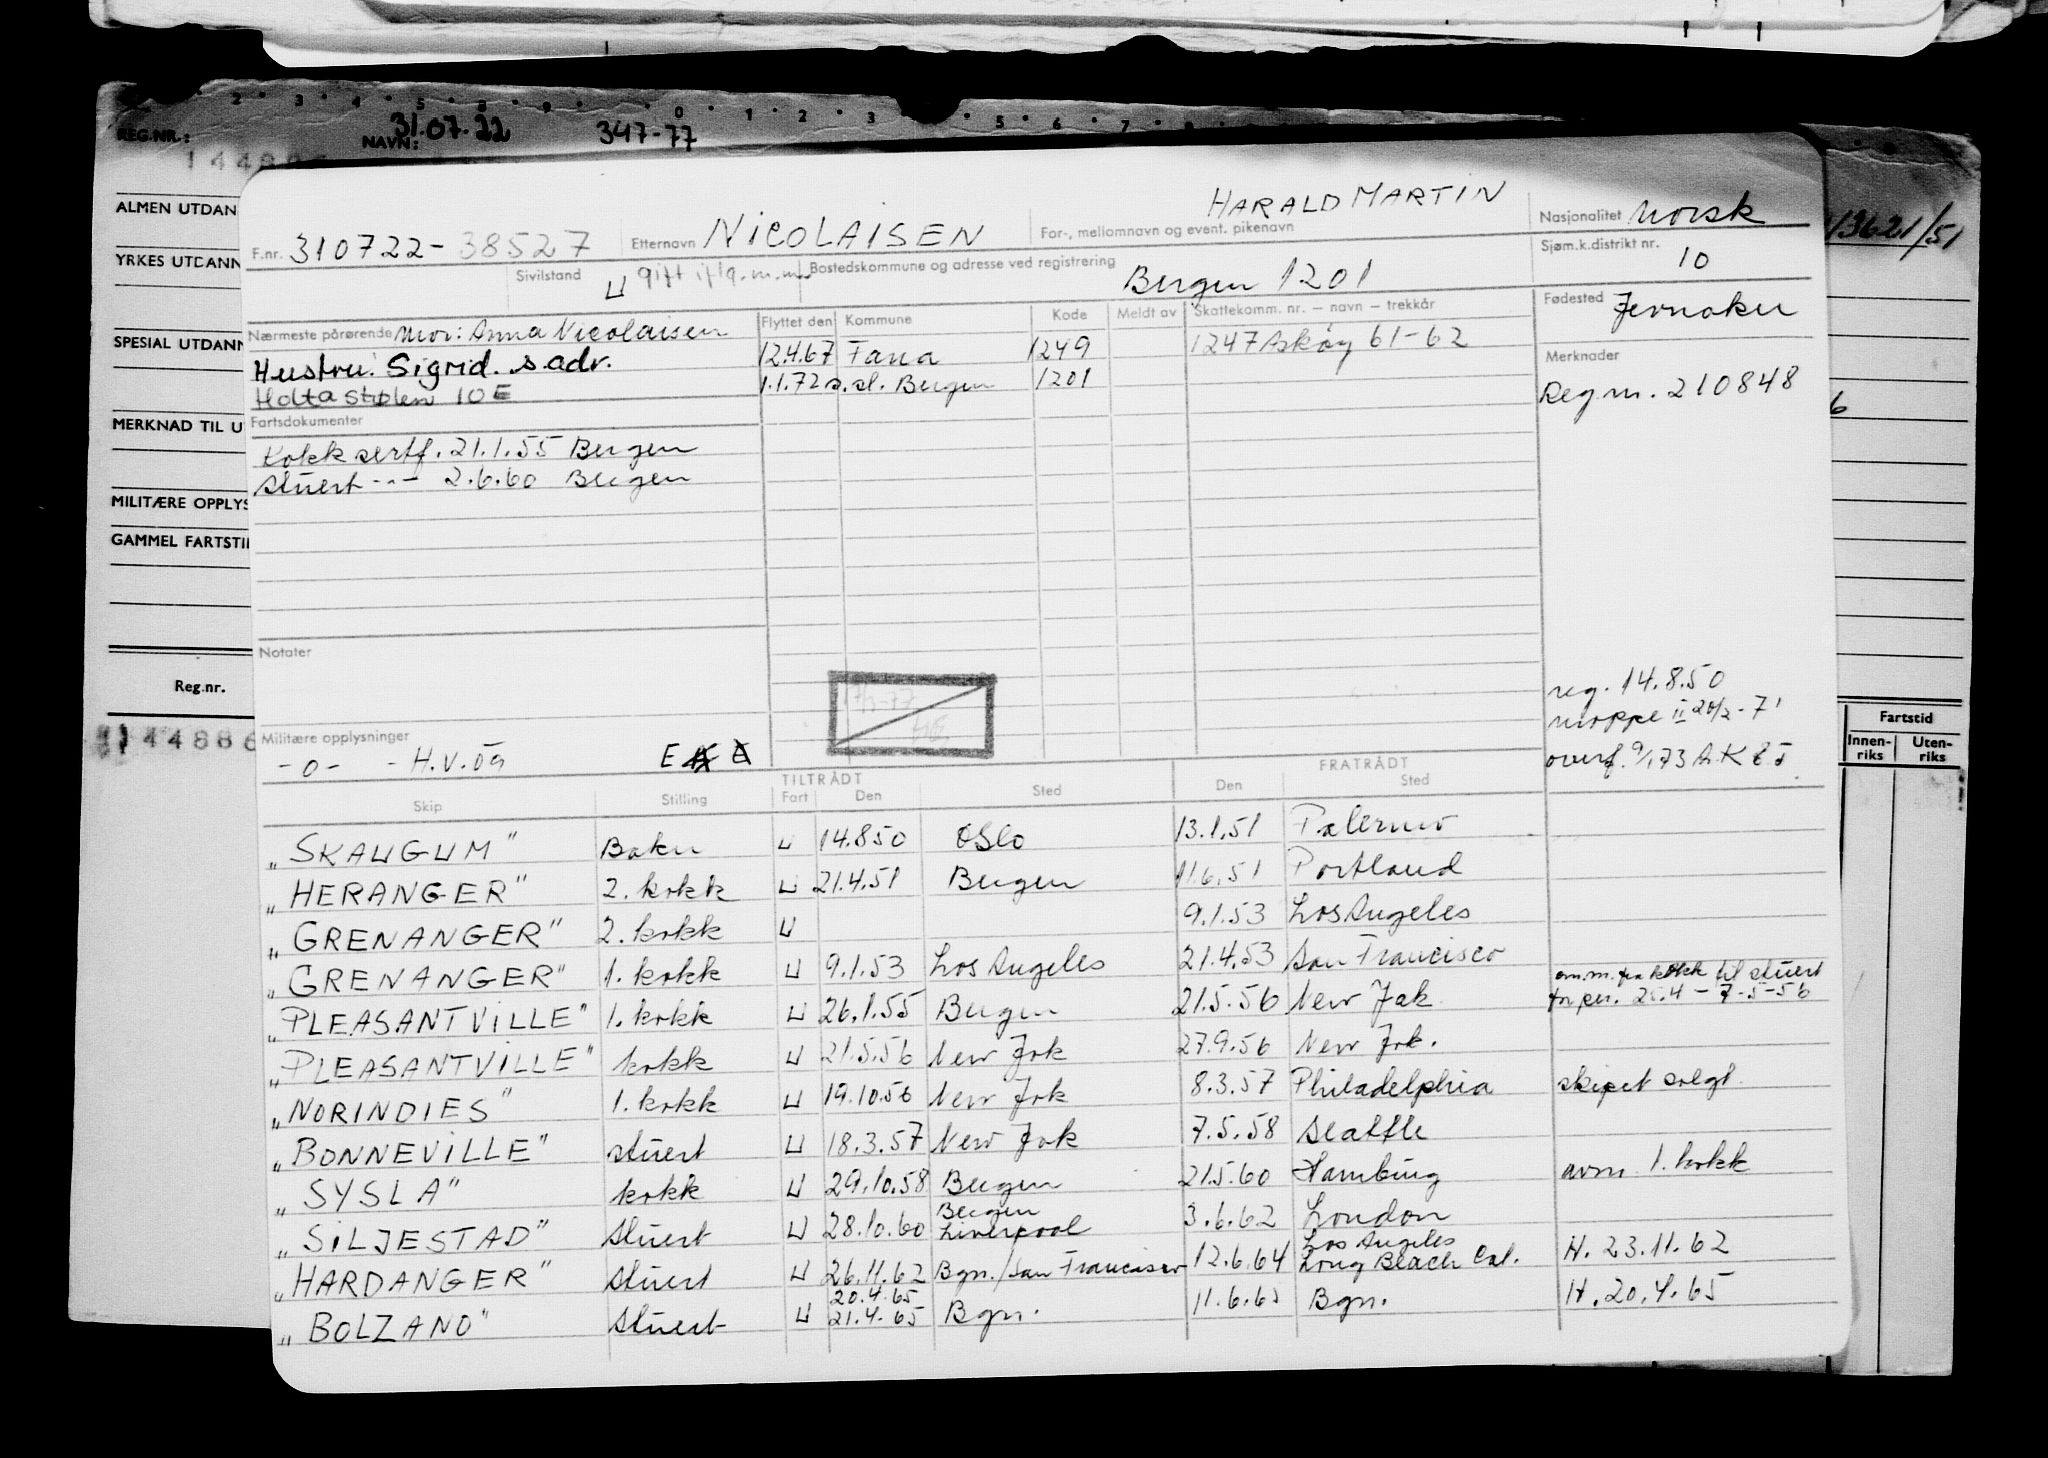 2 3 4 5 8 9 0 1 2 3 5 6 7
REG.NR.: NAVN: 31.07.22 347-77
ALMEN UTDAN
YRKES UTDANN
SPESIAL UTDANN
MERKNAD TIL U
MILITÆRE OPPLYS
GAMMEL FARTSTI
Reg.nr.
144886
13621/51
6
Fartstid
Innen-riks Uten-riks
F.nr. 310722-38527 Etternavn NICOLAISEN For-, mellomnavn og event. pikenavn HARALD MARTIN Nasjonalitet Norsk
Sivilstand U gift Bostedskommune og adresse ved registrering Bergen 1201 Sjøm.k.distrikt nr. 10
Nærmeste pårørende Mor: Anna Nicolaisen Flyttet den Kommune Kode Meldt av Skattekomm. nr. – navn – trekkår Fødested Jevnaker
Hustru: Sigrid. s.adr. 12.4.67 Fana 1249 1247 Askøy 61-62 Merknader
Holtastølen 10E 1.1.72 s.sl. Bergen 1201 Reg nr. 210848
Fartsdokumenter
Kokk sertf. 21.1.55 Bergen
Stuert -"- 2.6.60 Bergen
Notater
reg. 14.8.50
moppe II 20/2-71
Militære opplysninger
-o- - H.V. óg E
overf. 9/1 73 A.K.
Skip Stilling TILTRÅDT Fart Den Sted FRATRÅDT Den Sted
"SKAUGUM" Baker U 14.8.50 Oslo 13.1.51 Palermo
"HERANGER" 2. kokk U 21.4.51 Bergen 11.6.51 Portland
"GRENANGER" 2. kokk U 9.1.53 Los Angeles
"GRENANGER" 1. kokk U 9.1.53 Los Angeles 21.4.53 San Francisco
"PLEASANTVILLE" 1. kokk U 26.1.55 Bergen 21.5.56 New Jork om.m. fra kokk til stuert for per. 25.4-7-5-56
"PLEASANTVILLE" kokk U 21.5.56 New Jork 27.9.56 New Jork.
"NORINDIES" 1. kokk U 19.10.56 New Jork 8.3.57 Philadelphia skipet solgt
"BONNEVILLE" stuert U 18.3.57 New Jork 7.5.58 Seattle
"SYSLA" kokk U 29.10.58 Bergen 21.5.60 Hamburg avm. 1. kokk
"SILJESTAD" Stuert U 28.10.60 Bergen Liverpool 3.6.62 London
"HARDANGER" Stuert U 26.11.62 Bgn./San Francisco 12.6.64 Los Angeles Long Beach Cal. H. 23.11.62
"BOLZANO" Stuert U 20.4.65 21.4.65 Bgn. 11.6.65 Bgn. H. 20.4.65